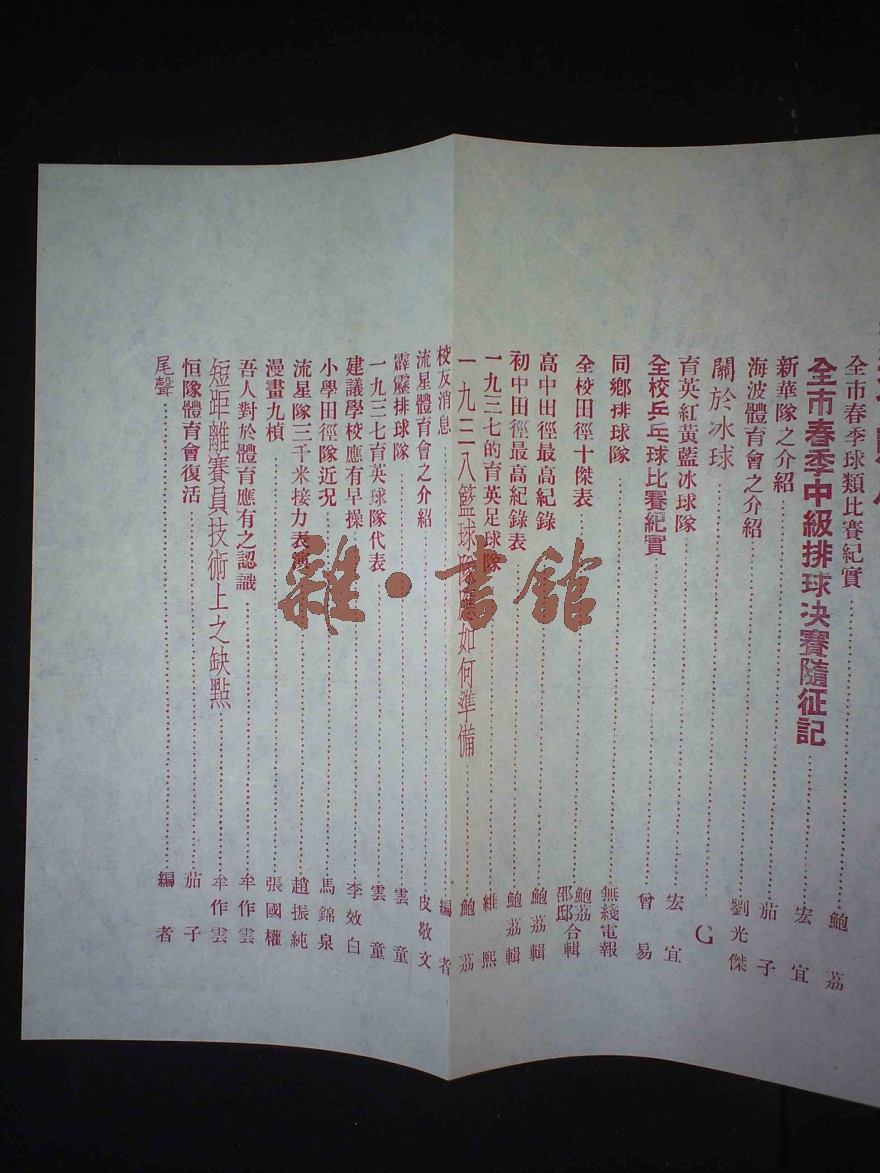 全市春季球類比賽紀實 鮑荔
全市春季中級排球決賽隨征記 宏宜
新華隊之介紹 茄子
海波體育會之介紹 劉光傑
關於冰球 G
育英紅黃藍冰球隊 宏宜
全校乒乓球比賽紀實 曾易
同鄉排球隊 無綫電報
全校田徑十傑表 鮑荔 邵邸合輯
高中田徑最高紀錄 鮑荔輯
初中田徑最高紀錄表 鮑荔輯
一九三七的育英足球隊 維熙
一九三八籃球隊應如何準備 鮑荔
校友消息 編者
流星體育會之介紹 皮敬文
霹靂排球隊 雲童
一九三七育英球隊代表 雲童
建議學校應有早操 李效白
小學田徑隊近況 馬錦泉
流星隊三千米接力表演 趙振純
漫畫九楨 張國權
吾人對於體育應有之認識 牟作雲
短距離賽員技術上之缺點 牟作雲
恒隊體育會復活 茄子
尾聲 編者
雜·書館